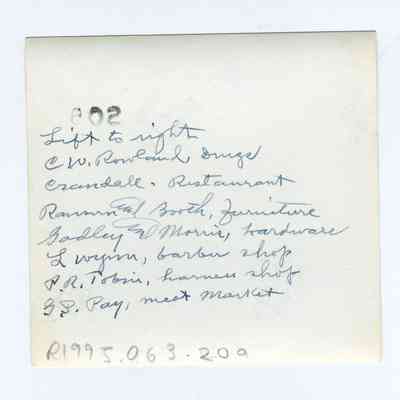 602
Lift to right
C W. Rowland, Drugs
Crandall - Restaurant
Ramm & Booth, furniture
Godley & Morris, hardware
L Wynn, barber shop
P. R. Tobin, harness shop
G. S. Pay, meat market
R1995.063.209